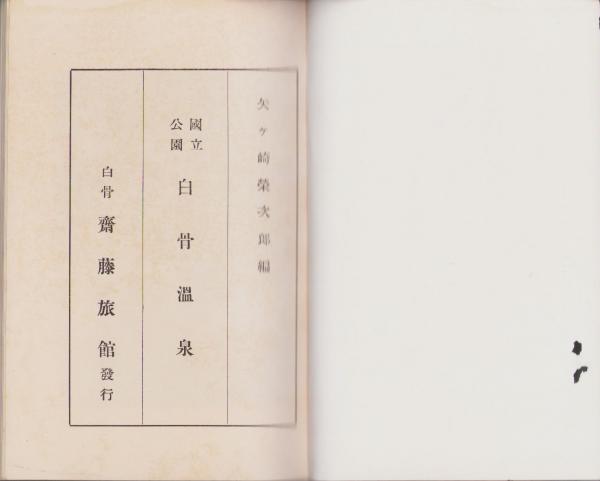 矢ヶ崎榮次郎編
國立公園 白骨溫泉
白骨 齋藤旅館發行